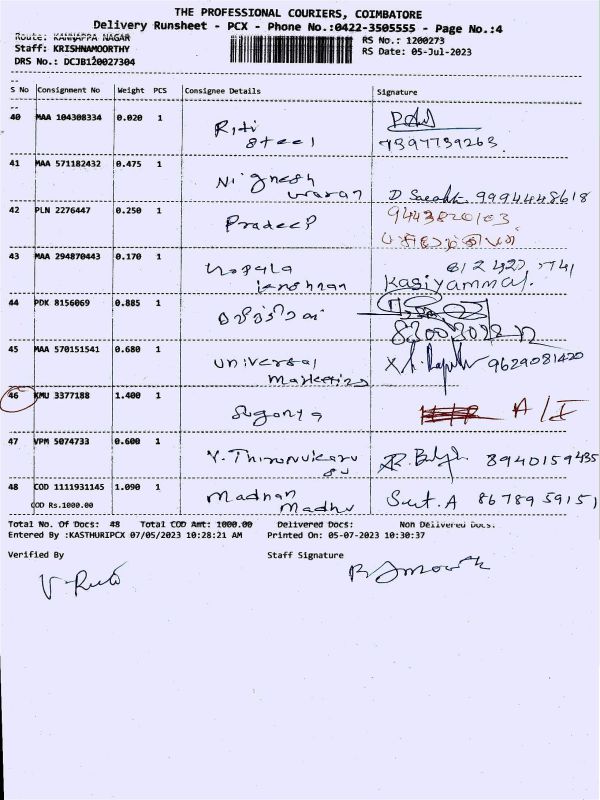 THE PROFESSIONAL COURIERS, COIMBATORE
Delivery Runsheet - PCX - Phone No.:0422-3505555 - Page No.:4
Route: KANNAPPA NAGAR
RS No.: 1200273
Staff: KRISHNAMOORTHY
RS Date: 05-Jul-2023
DRS No.: DCJB120027304
S No Consignment No Weight PCS Consignee Details Signature
40 MAA 104308334 0.020 1 Riti
steel 9397739263
41 MAA 571182432 0.475 1 Nignesh
waran D 9994448618
42 PLN 2276447 0.250 1 Pradeep 9443820103
43 MAA 294870443 0.170 1
Kasiyammal
44 PDK 8156069 0.885 1
45 MAA 570151541 0.680 1 Universal
Marketing 9629081420
46 KMU 3377188 1.400 1 Suganya A/I
47 VPM 5074733 0.600 1 V. 8940159435
48 COD 1111931145 1.090 1 Madhan
COD Rs.1000.00 Madhu A 8678959151
Total No. Of Docs: 48 Total COD Amt: 1000.00 Delivered Docs: Non Delivered Docs:
Entered By :KASTHURIPCX 07/05/2023 10:28:21 AM Printed On: 05-07-2023 10:30:37
Verified By Staff Signature